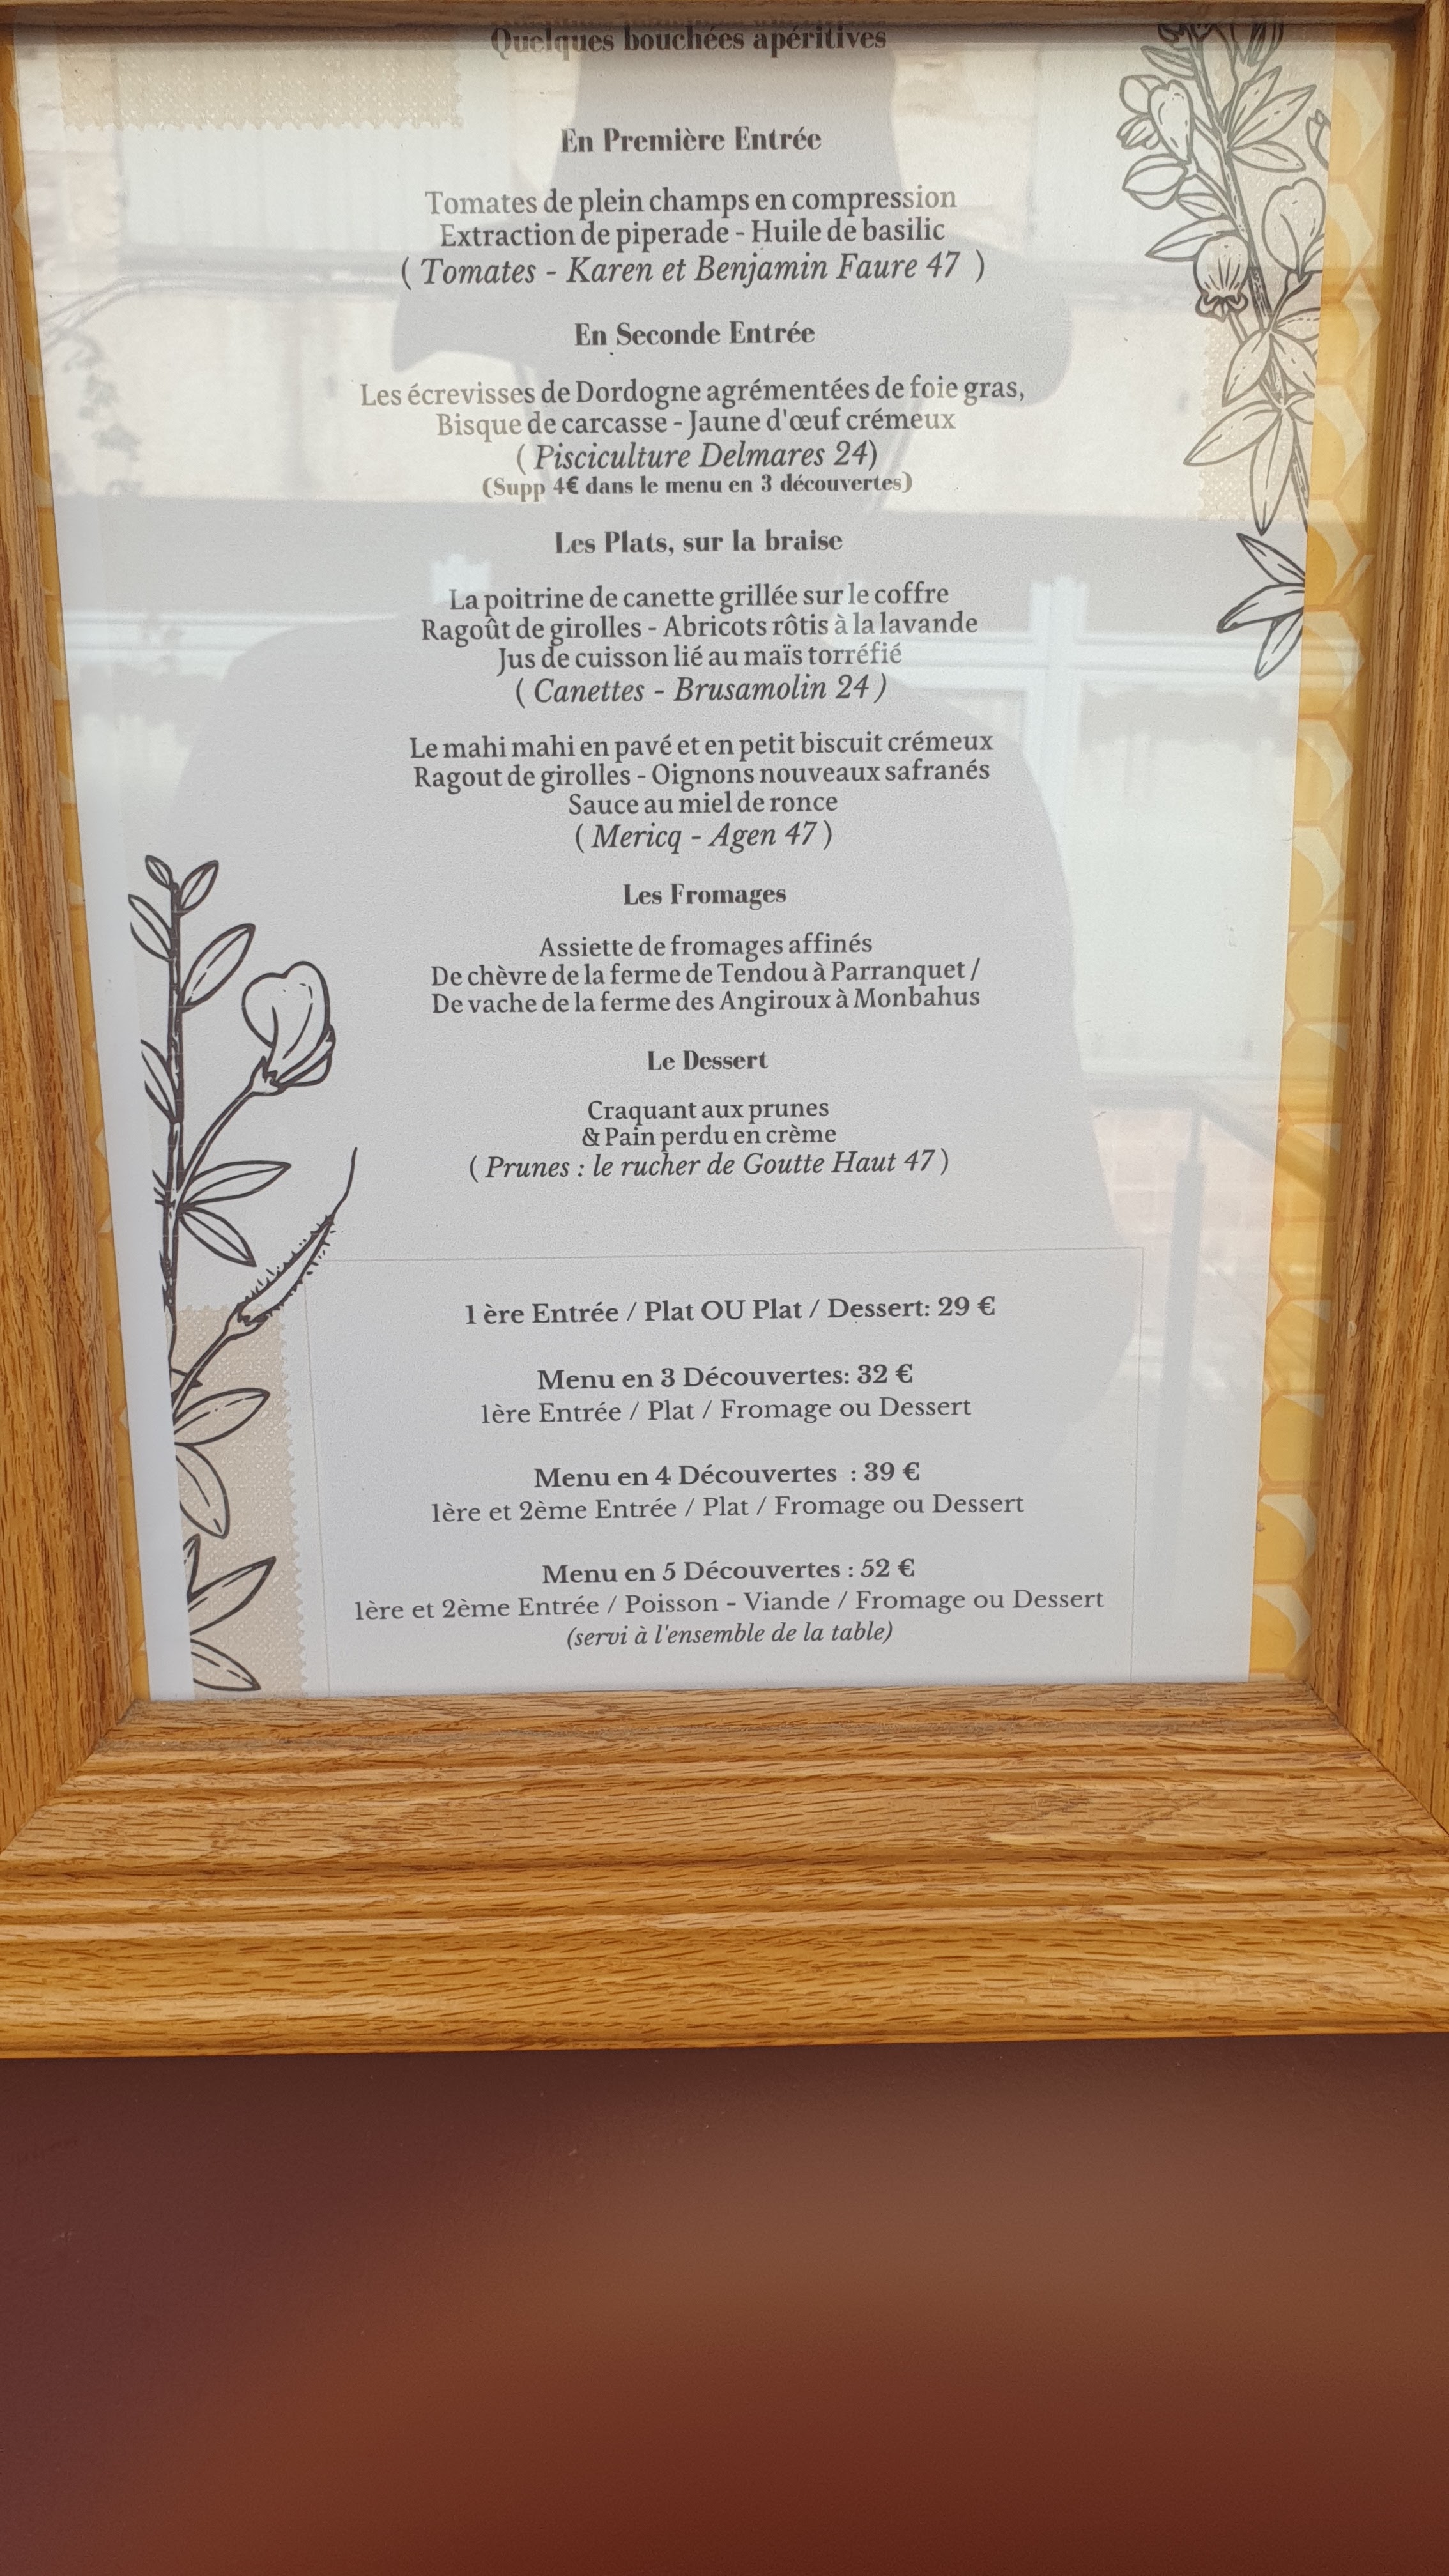 Quelques bouchées apéritives
En Première Entrée
Tomates de plein champs en compression
Extraction de piperade - Huile de basilic
( Tomates - Karen et Benjamin Faure 47 )
En Seconde Entrée
Les écrevisses de Dordogne agrémentées de foie gras,
Bisque de carcasse - Jaune d'œuf crémeux
( Pisciculture Delmares 24)
(Supp 4€ dans le menu en 3 découvertes)
Les Plats, sur la braise
La poitrine de canette grillée sur le coffre
Ragoût de girolles - Abricots rôtis à la lavande
Jus de cuisson lié au maïs torréfié
( Canettes - Brusamolin 24 )
Le mahi mahi en pavé et en petit biscuit crémeux
Ragout de girolles - Oignons nouveaux safranés
Sauce au miel de ronce
( Mericq - Agen 47 )
Les Fromages
Assiette de fromages affinés
De chèvre de la ferme de Tendou à Parranquet /
De vache de la ferme des Angiroux à Monbahus
Le Dessert
Craquant aux prunes
& Pain perdu en crème
( Prunes : le rucher de Goutte Haut 47 )
1 ère Entrée / Plat OU Plat / Dessert: 29 €
Menu en 3 Découvertes: 32 €
1ère Entrée / Plat / Fromage ou Dessert
Menu en 4 Découvertes : 39 €
1ère et 2ème Entrée / Plat / Fromage ou Dessert
Menu en 5 Découvertes : 52 €
1ère et 2ème Entrée / Poisson - Viande / Fromage ou Dessert
(servi à l'ensemble de la table)